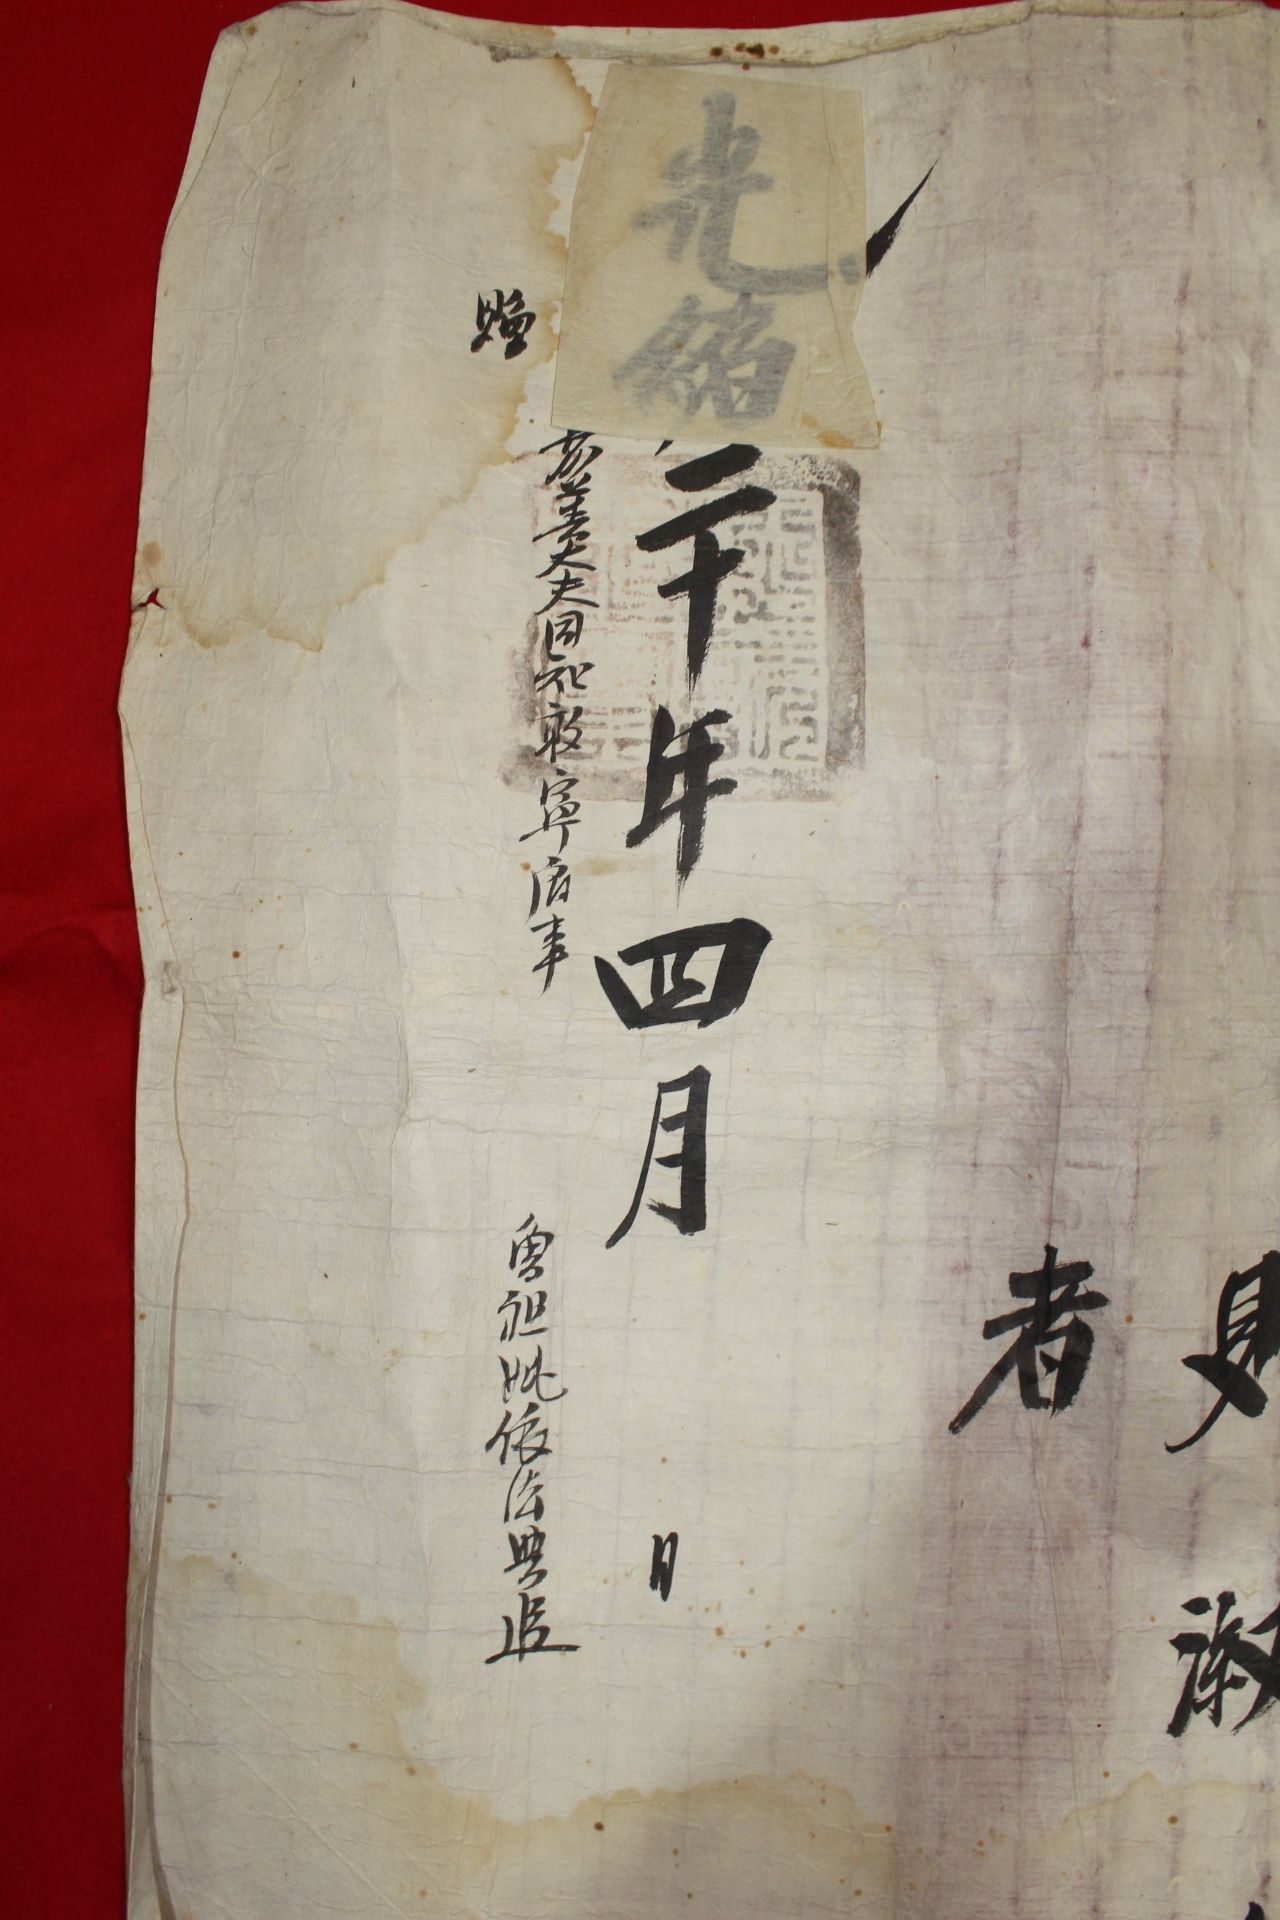 者
光緖二十年四月 日
嘉善大夫同知敦寧府事 曾祖妣依法典追
贈